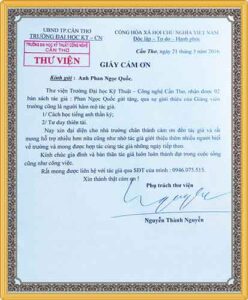 UBND TP.CẦN THƠ
TRƯỜNG ĐẠI HỌC KT - CN
TRƯỜNG ĐẠI HỌC KỸ THUẬT CÔNG NGHỆ
CẦN THƠ
THƯ VIỆN
CỘNG HÒA XÃ HỘI CHỦ NGHĨA VIỆT NAM
Độc lập - Tự do - Hạnh phúc
Cần Thơ, ngày 21 tháng 3 năm 2016
GIẤY CẢM ƠN
Kính gửi : Anh Phan Ngọc Quốc.
Thư viện Trường Đại học Kỹ Thuật - Công nghệ Cần Thơ, nhận được 02
bản sách tác giả : Phan Ngọc Quốc gửi tặng, qua sự giới thiệu của Giảng viên
trường cũng là người hâm mộ tác giả.
1/ Cách học tiếng anh thần kỳ;
2/ Tư duy thiên tài.
Nay xin đại diện cho nhà trường chân thành cảm ơn đến tác giả và rất
mong hỗ trợ nhiều hơn nữa cũng như nhờ tác giả giới thiệu thêm nhiều người biết
về trường và mong được hợp tác cùng tác giả những ngày tiếp theo.
Kính chúc gia đình và bản thân tác giả luôn luôn thành đạt trong cuộc sống
cũng như công việc.
Rất mong được liên hệ với tác giả qua SĐT của mình : 0946.075.515.
Xin thành thật cảm ơn !
Phụ trách thư viện
Nguyễn
Nguyễn Thành Nguyên